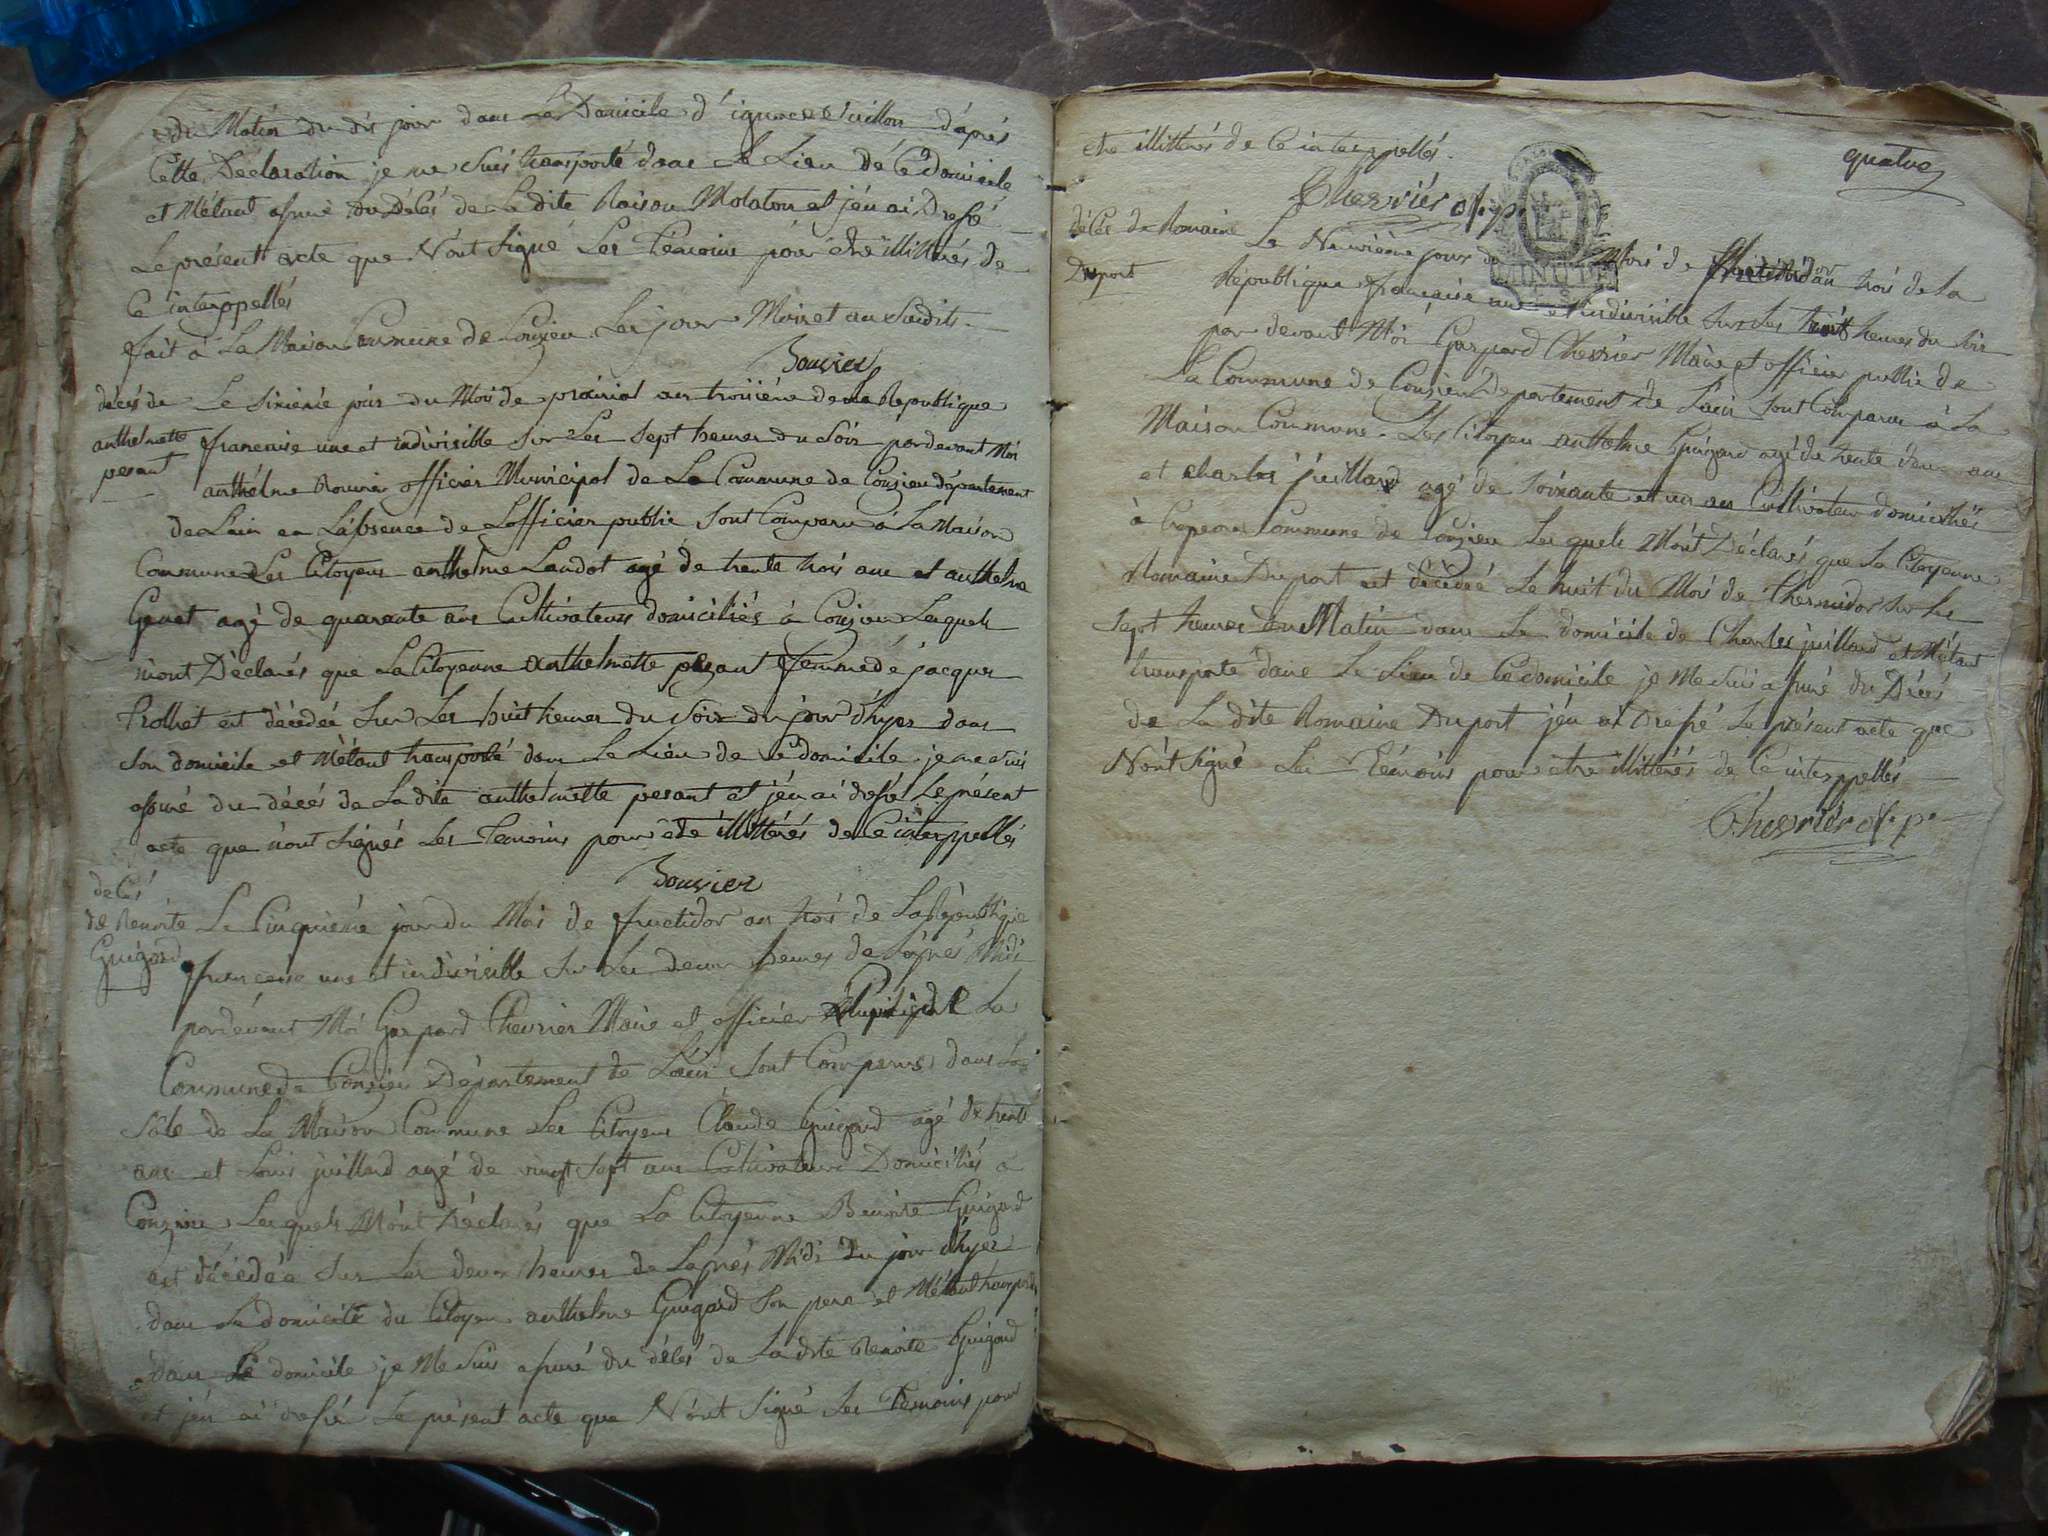 du Matin du dit jour dans Le Domicile d'ignace Cuillon d'aprés
Cette Declaration je me suis transporté dans Le Lieu dé Cé domicile
et M'étant assuré du Décés de La dite Molaton et j'én ai Dressé
Le présent acte que N'ont Signé Les Témoins pour étre illittérés de
Ce interppellés
fait à La Maison Commune de Conzieu Les jour Mois et an Susdits
Bouvier
décés de
anthelmette
pesant
Le Sixiéme jour du Mois de prairial an troisiéme de La Republique
francaise une et indivisible Sur Les Sept heures du Soir par devant Moi
anthélme Bouvier officier Municipal de La Commune de Conzieu département
de L'ain en L'absence de L'officier public Sont Comparu à La Maison
Commune Les Citoyens anthelme Landot agé de trente trois ans et anthelme
Genet agé de quarante ans Cultivateurs domiciliés à Conzieu Lesquels
m'ont Déclarés que La Citoyenne anthelmette pesant femme dé jacques
est décédée Sur Les huit heures du Soir du jour d'hyer dans
Son domicile et M'étant transporté dans Le Lieu de Cé domicile je me suis
assuré du décés de La dite anthelmette pesant et j'én ai dressé Le présent
acte que n'ont Signés Les Temoins pour étre illittérés de Ce interppellés
Bouvier
décés
de Benoite
Guigard
Le Cinquiéme jour du Mois de fructidor an trois de La République
francaise une et indivisible Sur Les deux heures de L'aprés Midi
pardevant Moi Gaspard Chevrier Maire et officier de La
Commune de Conzieu Département de L'ain Sont Comparus dans La
Sale de La Maison Commune Les Citoyens Claude Guigard agé de trente
ans et Louis juillard agé de vingt Sept ans Cultivateurs Domiciliés à
Conzieu Lesquels M'ont Déclarés que La Citoyenne Benoite Guigard
est décédée Sur Les deux heures de L'aprés Midi du jour d'hyer
dans Le domicile du Citoyen anthelme Guigard Son pere et M'étant transporté
dans Cé domicile je Me Suis assuré du décés de La dite Benoite Guigard
et j'én ai dressé Le présent acte que N'ont Signé Les Temoins pour
quatre
étre illittérés de Ce interppellés.
Chevriér of. p.
décés de Romaine
Duport
Le Neuviéme jour du Mois de an trois de la
République française une et indivisible Sur Les huit heures du Soir
par devant Moi Gaspard Chevrier Maire et officier public de
La Commune de Conzieu Département de L'ain Sont Comparu à La
Maison Commune Les Citoyens anthelme Guigard agé de trente deux ans
et Charles juillard agé de Soixante et un an Cultivateur domiciliés
à Crapeou Commune de Conzieu Lesquels M'ont Déclarés que La Citoyenne
Romaine Duport est décédeé Le huit du Mois de Thérmidor Sur Les
Sept heures du Matin dans Le domicile de Charles juillard et M'étant
transporté dans Le Lieu de Cé domicile je Me Suis assuré du Décés
de La dite Romaine Duport j'én ai Dressé Le présent acte que
N'ont Signé Les Témoins pour étre illittérés de Ce interppellés
Chevriér of. p.